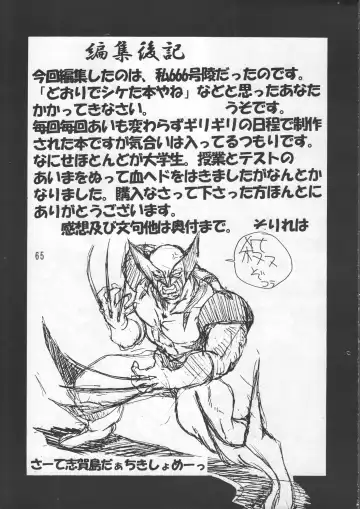 編集後記
今回編集したのは、私666号陵だったのです。
「どおりでシケた本やね」などと思ったあなた
かかってきなさい。 うそです。
毎回毎回あいも変わらずギリギリの日程で制作
された本ですが気合いは入ってるつもりです。
なにせほとんどが大学生。授業とテストの
あいまをぬって血ヘドをはきましたがなんとか
なりました。購入なさって下さった方ほんとに
ありがとうございます。
感想及び文句他は奥付まで。 そりれは
65
さーて志賀島だぁちきしょめーっ